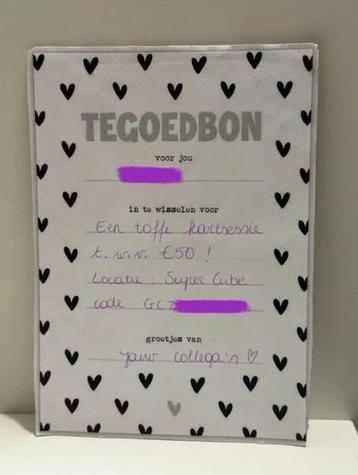 TEGOEDBON
voor jou
in te wisselen voor
Een toffe kartsessie
t.w.v. €50 !
Locatie : Super Cube
code : GCZ
groetjes van
jouw collega's